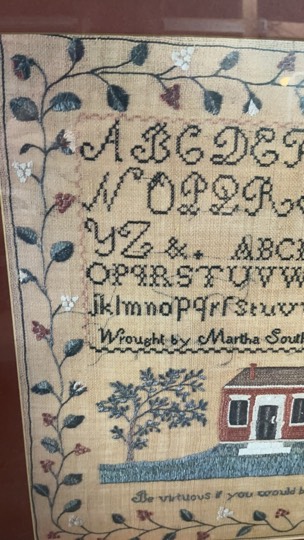 A B C D E F
N O P Q R
Y Z & . A B C
O P Q R S T U V W
j k l m n o p q r f s t u v
Wrought by Martha
Be virtuous if you would